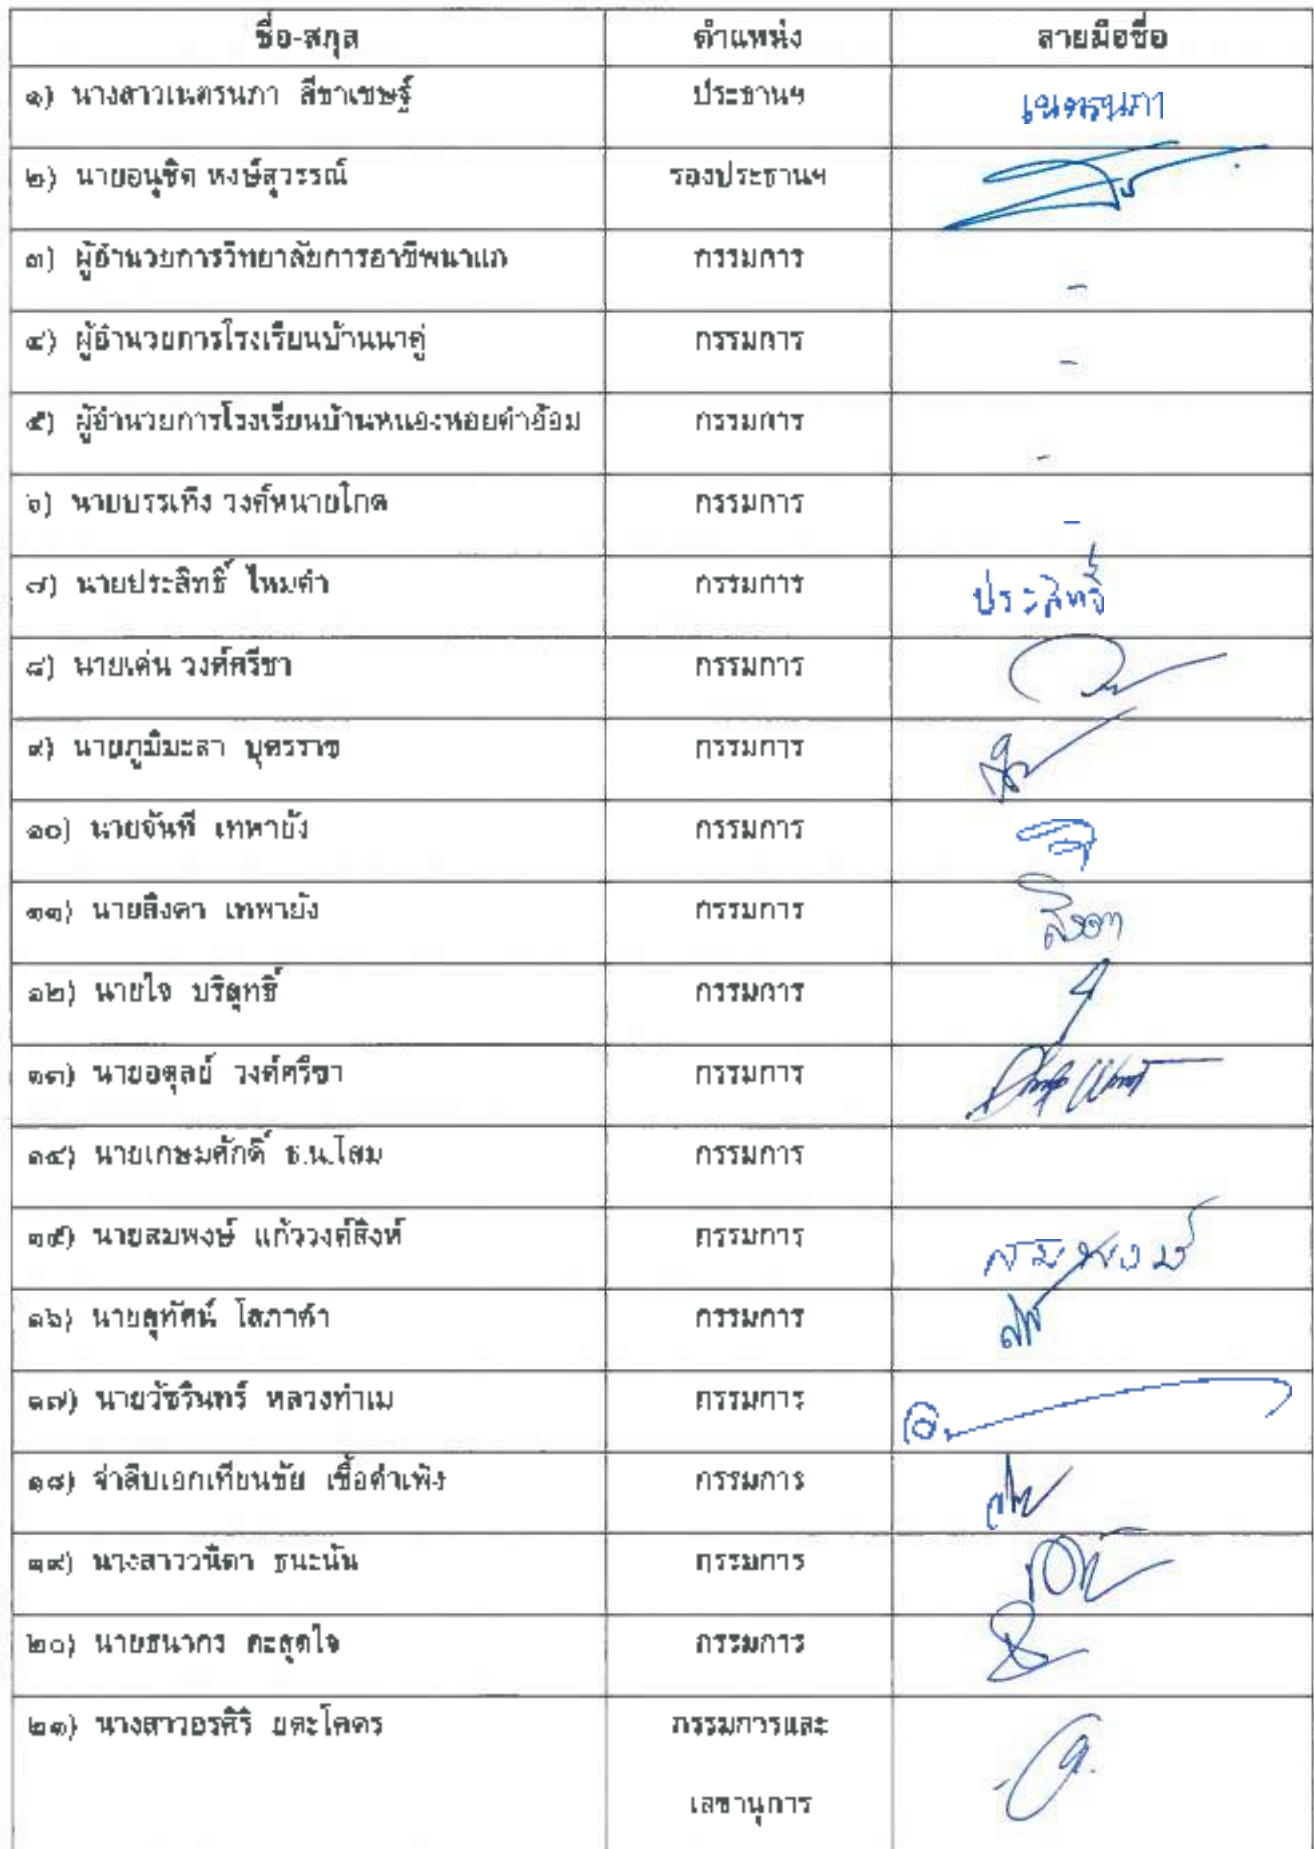 ชื่อ-สกุล ตำแหน่ง ลายมือชื่อ
๑) นางสาวเนตรนภา สีขาเชษฐ์ ประธานฯ เนตรนภา
๒) นายอนุชิต หงษ์สุวรรณ์ รองประธานฯ
๓) ผู้อำนวยการวิทยาลัยการอาชีพนาแก กรรมการ -
๔) ผู้อำนวยการโรงเรียนบ้านนาคู่ กรรมการ -
๕) ผู้อำนวยการโรงเรียนบ้านหนองหอยคำอ้อม กรรมการ -
๖) นายบรรเทิง วงค์หนายโกด กรรมการ -
๗) นายประสิทธิ์ ไหมคำ กรรมการ ประสิทธิ์
๘) นายเด่น วงศ์ศรีชา กรรมการ
๙) นายภูมิมะลา บุตรราช กรรมการ
๑๐) นายจันที เทพายัง กรรมการ
๑๑) นายสิงดา เทพายัง กรรมการ สิงดา
๑๒) นายใจ บริสุทธิ์ กรรมการ
๑๓) นายอดุลย์ วงค์ศรีชา กรรมการ
๑๔) นายเกษมศักดิ์ ธ.น.โสม กรรมการ
๑๕) นายสมพงษ์ แก้ววงค์สิงห์ กรรมการ สมพงษ์
๑๖) นายสุทัศน์ โสภาคำ กรรมการ
๑๗) นายวัชรินทร์ หลวงทำเม กรรมการ
๑๘) จ่าสิบเอกเทียนชัย เชื้อคำเพ้ง กรรมการ
๑๙) นางสาววนิดา ธนะนัน กรรมการ
๒๐) นายธนากร คะสุดใจ กรรมการ
๒๑) นางสาวอรศิริ ยตะโคตร กรรมการและ
เลขานุการ